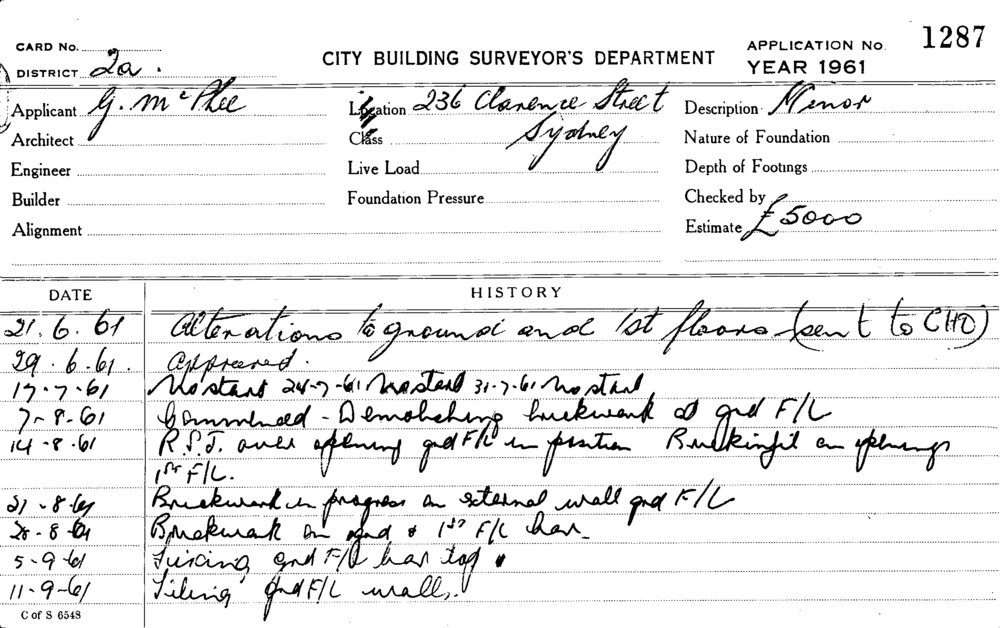 CARD No.
DISTRICT 2a.
CITY BUILDING SURVEYOR'S DEPARTMENT
APPLICATION No. 1287
YEAR 1961
Applicant G. McPhee
Location 236 Clarence Street
Description Minor
Architect
Class Sydney
Nature of Foundation
Engineer
Live Load
Depth of Footings
Builder
Foundation Pressure
Checked by
Alignment
Estimate £5000
DATE HISTORY
21.6.61 Alterations to ground and 1st floors (sent to CHO)
29.6.61. Approved.
17-7-61 No start 24-7-61 No start 31-7-61 No start
7-8-61 Commenced - Demolishing brickwork at grd F/L
14-8-61 R.S.J. over opening grd F/L in position Brickinfil on openings
1st F/L.
21-8-61 Brickwork in progress on external wall grd F/L
28-8-61 Brickwork on grd & 1st F/L bar.
5-9-61 Fixing grd F/L bar top
11-9-61 Tiling grd F/L walls.
C of S 6548